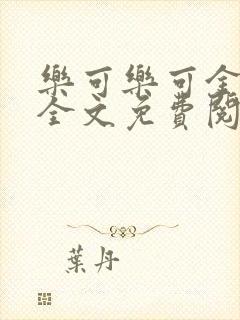 樂可樂可全
全文免費閱
葉丹